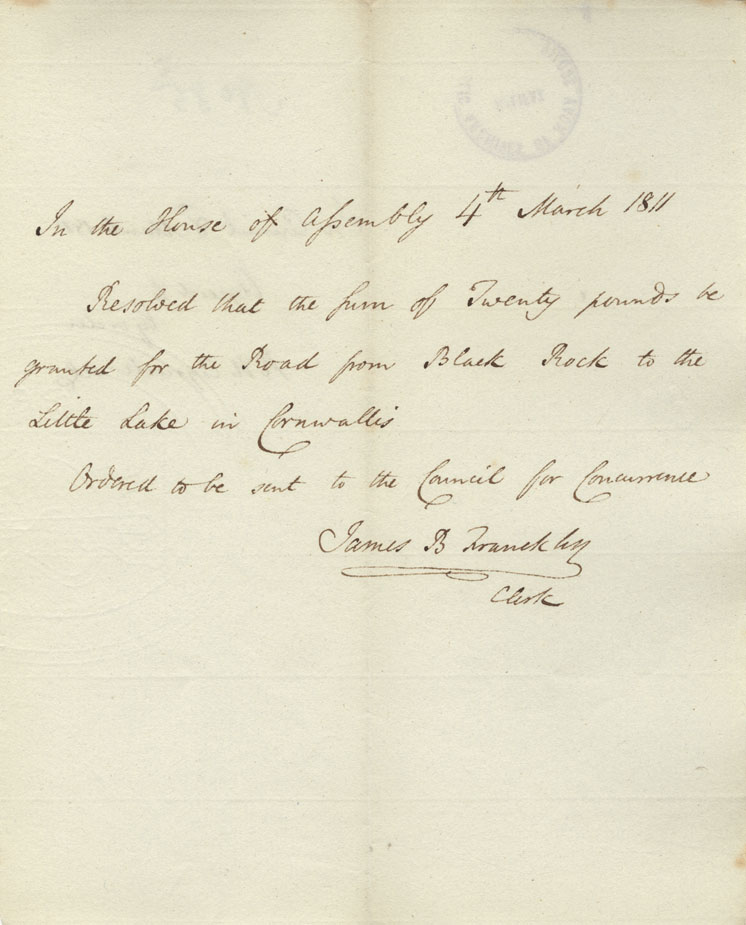 In the House of Assembly 4th March 1811
Resolved that the sum of Twenty pounds be
granted for the Road from Black Rock to the
Little Lake in Cornwallis
Ordered to be sent to the Council for Concurrence
James B Franck
Clerk